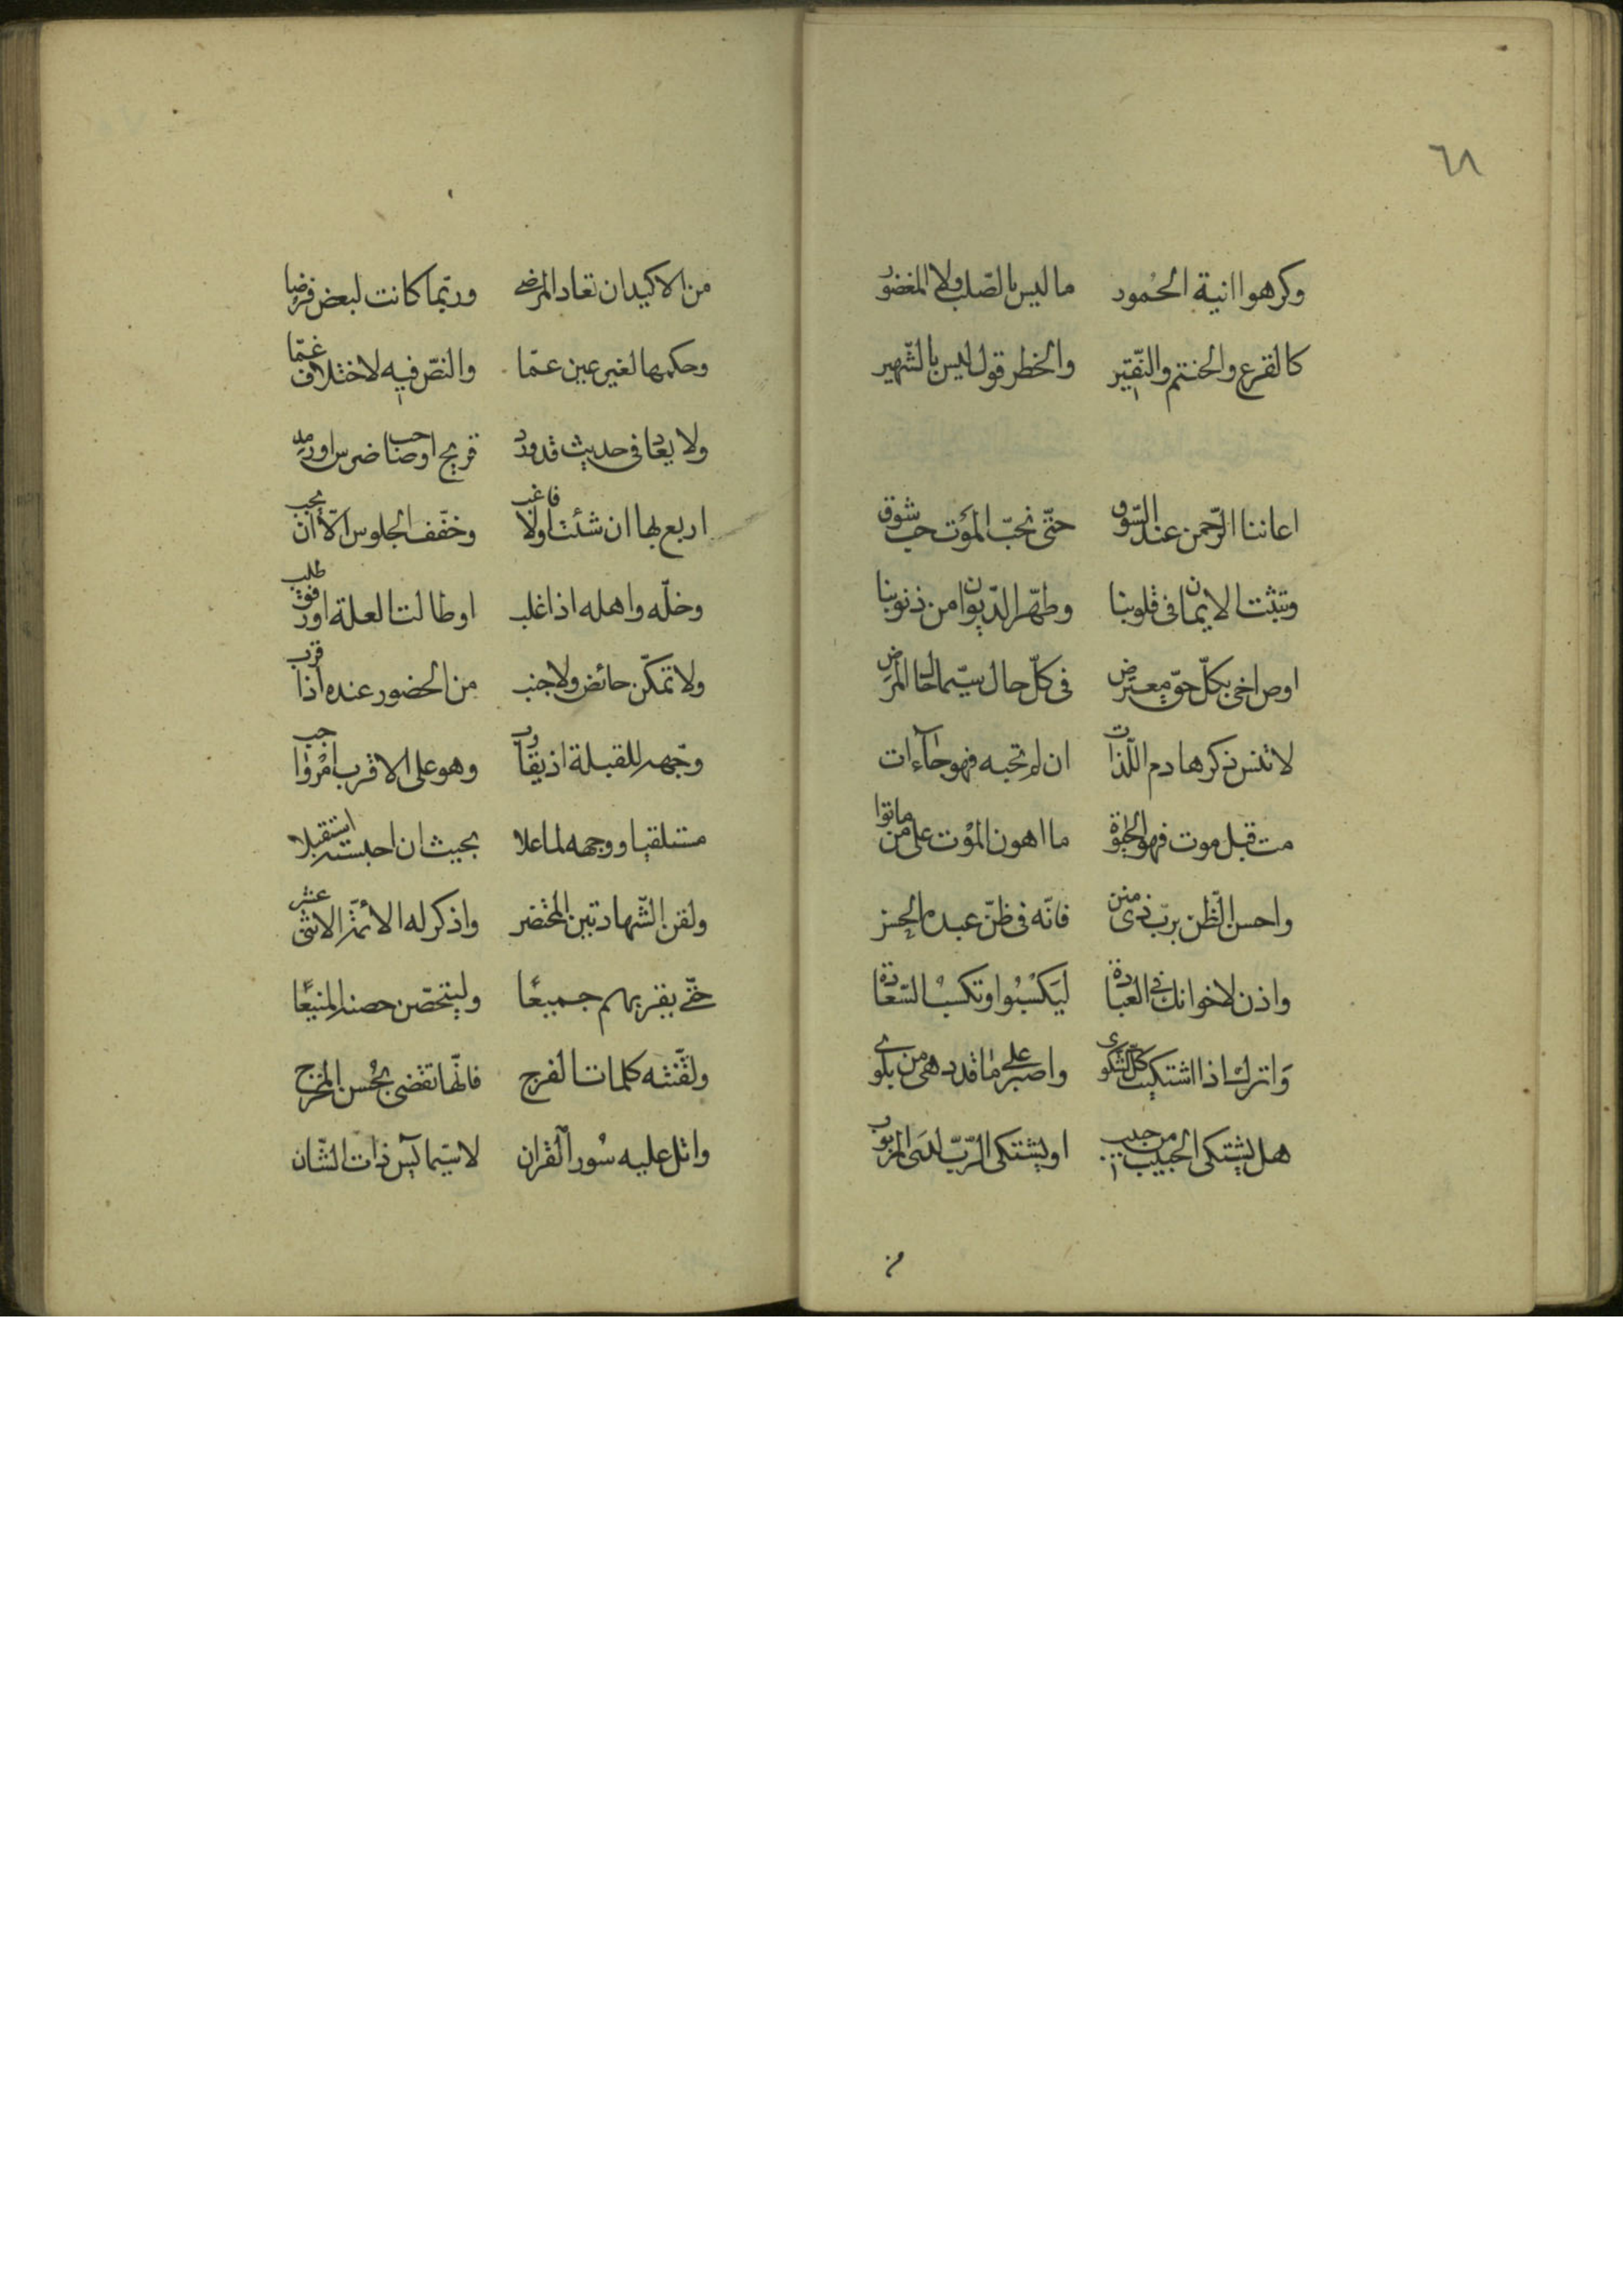 ٦٨
وكرهوا انية الخمور ما ليس بالصّلب ولا المغضور
كالقرع والخنتم والنّقيّر والخطر قول ليس بالشّهير
اعاننا الرّحمن عند السّوق حتّى نحبّ الموت حبّ شوق
وتثبت الايمان فى قلوبنا وطهّر الدّيوان من ذنوبنا
اوص اخى بكلّ حقّ معترض فى كلّ حال سيّما حال المرض
لا تنس ذكر هادم اللّذات ان لم تجبه فهو حتما آت
مت قبل موت فهو الحيوة ما اهون الموت على من ماتوا
واحسن الظّن بربّ ذى منن فانّه فى ظنّ عبده الحسن
واذن لاخوانك فى العيادة ليكسبوا وتكسب السّعادة
واترك اذا اشتكيت كلّ الشّكوى واصبر على ما قد دهى من بلوى
هل يشتكى الحبيب من حبيب او يشتكى الرّبّ لدى المربوب
من
من الاكيد ان تعاد المرضى وربّما كانت لبعض فرضا
وحكمها لغير عين عمّا والنصّ فيه لاختلاف غمّا
ولا يعاد فى حديث قد ورد قريح او صاحب ضرس او رمد
اربع بها ان شئت اولا فاغب وخفّف الجلوس الّا ان يجب
وخلّه واهله اذا غلب او طالت العلة او رفق طلب
ولا تمكّن حائض ولا جنب من الحضور عنده اذا قرب
وجّهه للقبلة اذ يقارب وهو على الاقرب امر واجب
مستلقيا ووجهه لما علا بحيث ان اجلسته استقبلا
ولقن الشّهادتين المحتضر واذكر له الائمّة الاثنى عشر
حتّى يقرّ بهم جميعًا وليتحصّن حصنه المنيعًا
ولقّنته كلمات الفرج فانّها تقضى بحُسن المخرج
واتل عليه سُور القران لا سيّما يس ذات الشّان